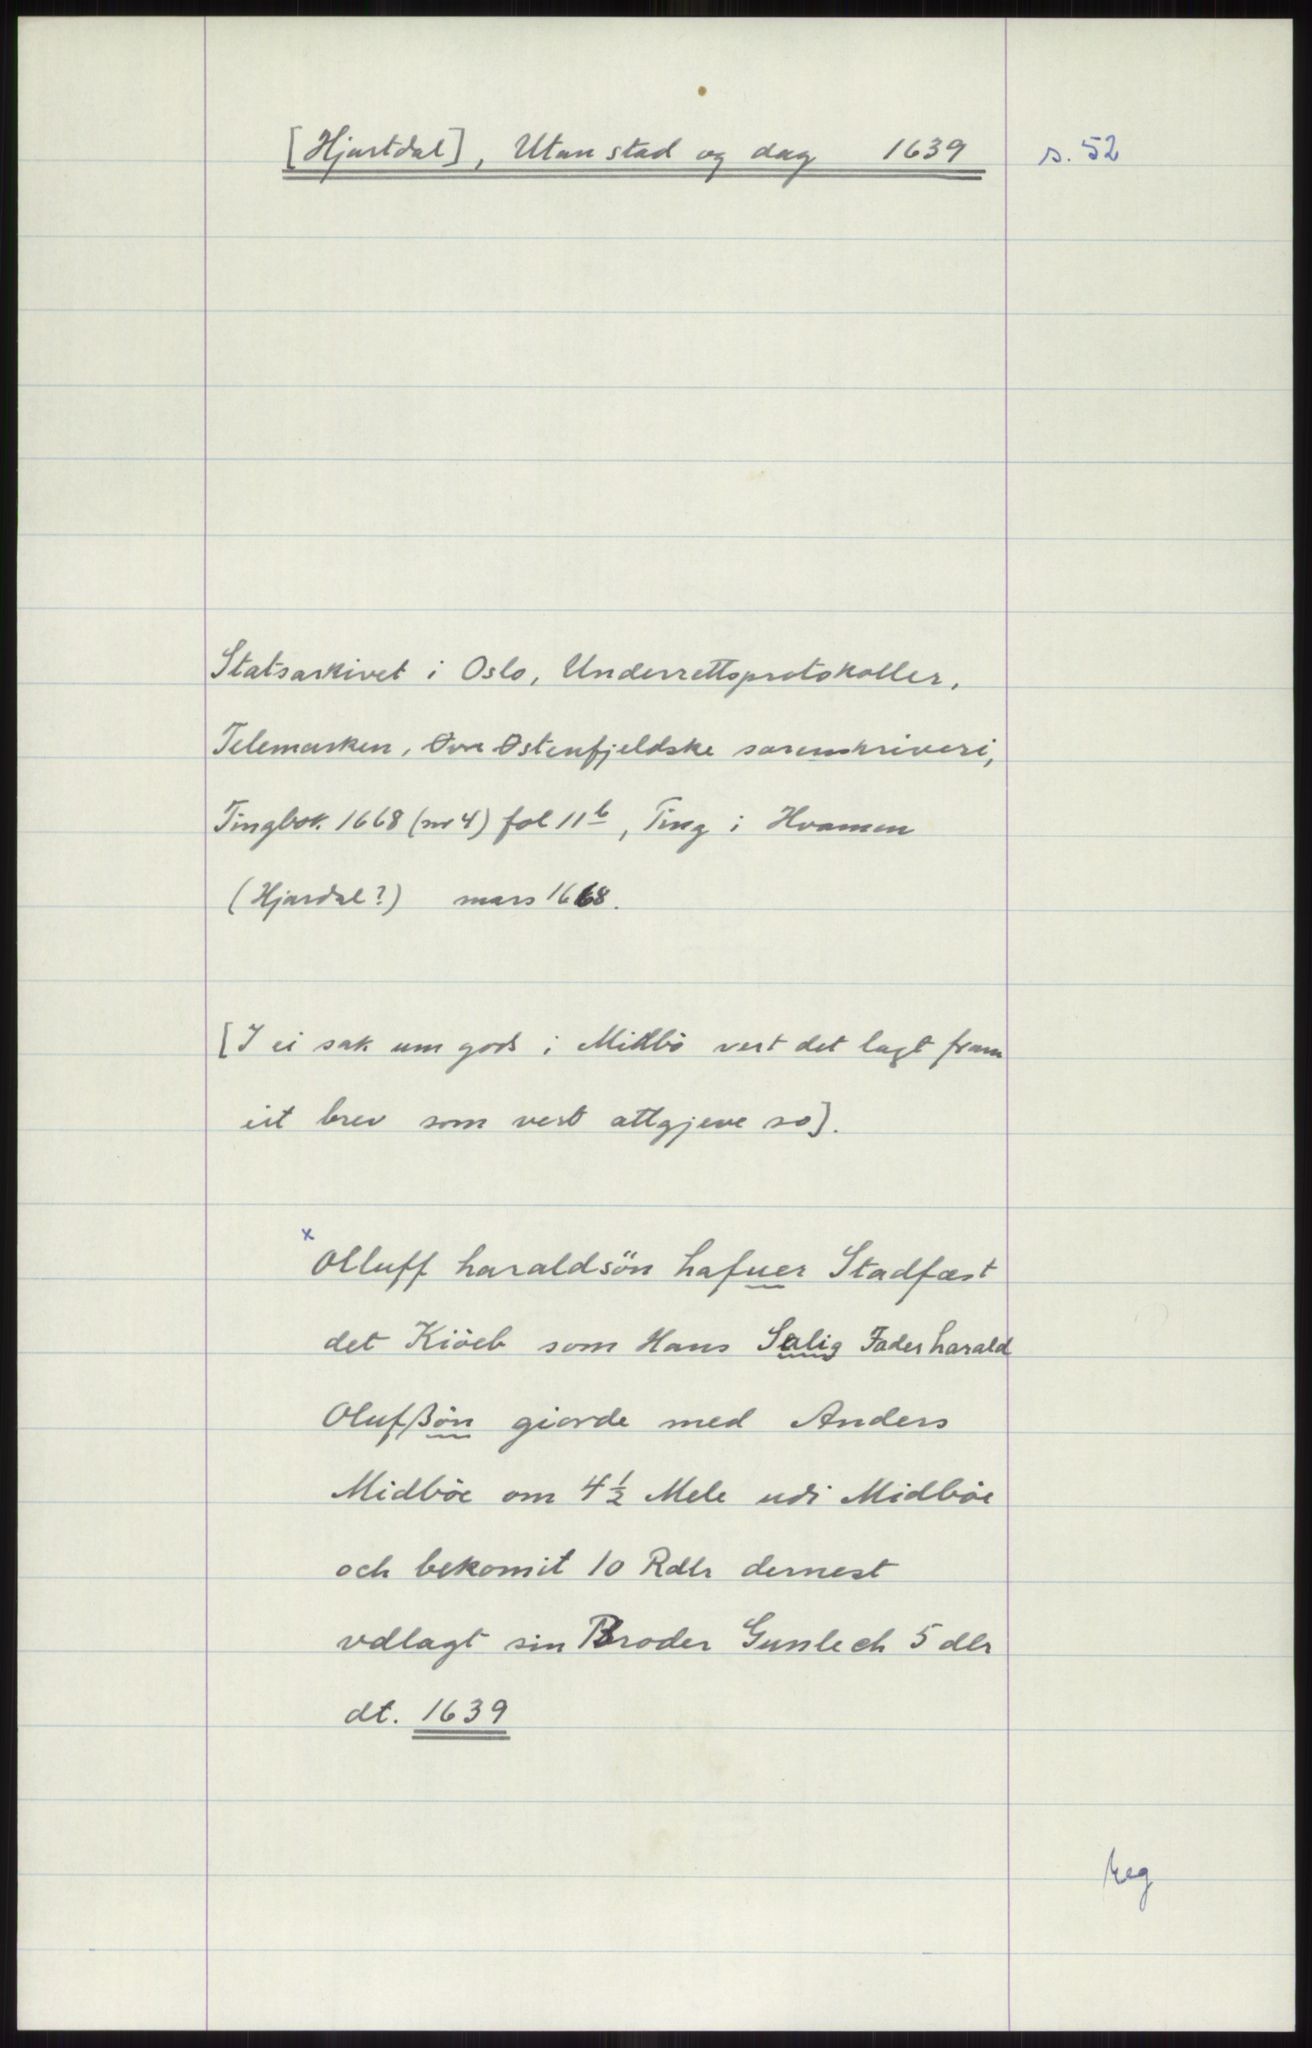 [Hjartdal], Utan stad og dag 1639 s. 52
Statsarkivet i Oslo, Underrettsprotokoller,
Telemarken, Østenfjeldske sorenskriveri,
Tingbok 1668 (nr 4) fol 11b, Ting i Hvammen
(Hjardal?) mars 1668.
[I ei sak um gods i Midbö vert det lagt fram
eit brev som vert attgjeve so].
x Olluff haraldsön hafuer Stadfæst
det Kiöeb som Hans Salig Fader harald
Olufßön giorde med Anders
Midböe om 4 1/2 Mele udi Midböe
och bekomit 10 Rdlr dernest
vdlagt sin Broder Gunlech 5 dlr
dt. 1639
Reg